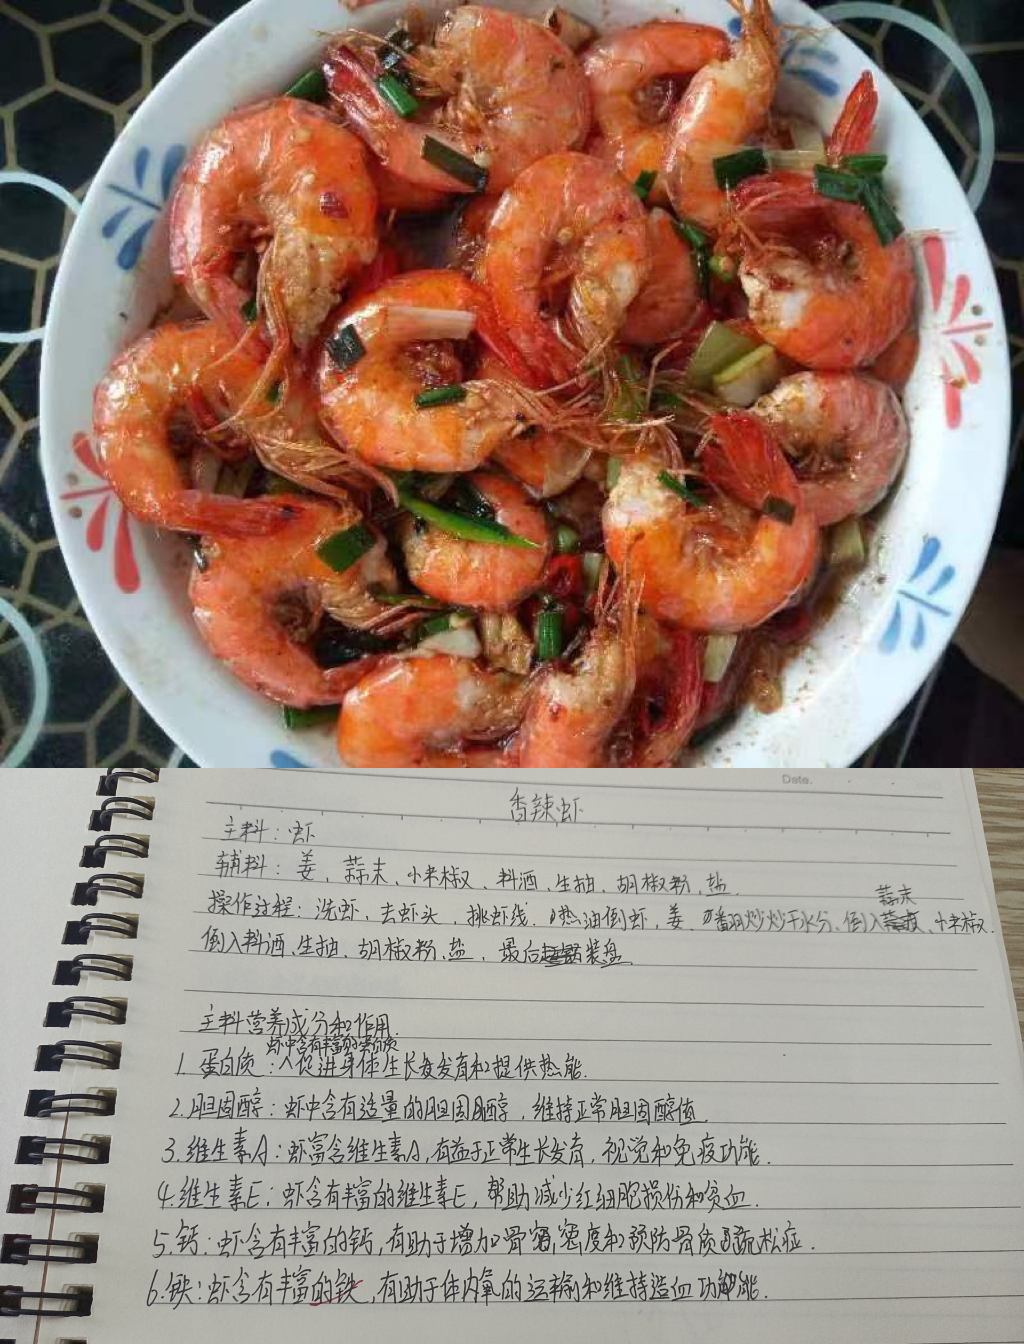 Date.
香辣虾
主料：虾
辅料：姜、蒜末、小米椒、料酒、生抽、胡椒粉、盐.
蒜末
操作过程：洗虾、去虾头、挑虾线、热油倒虾、姜、翻炒炒干水分、倒入、小米椒.
倒入料酒、生抽、胡椒粉、盐、最后装盘.
主料营养成分和作用.
虾中含有丰富的蛋白质
1.蛋白质：促进身体生长发育和提供热能.
2.胆固醇：虾中含有适量的胆固醇，维持正常胆固醇值.
3.维生素A：虾富含维生素A，有益于正常生长发育，视觉和免疫功能.
4.维生素E：虾含有丰富的维生素E，帮助减少红细胞损伤和贫血.
5.钙：虾含有丰富的钙，有助于增加骨密度和预防骨质疏松症.
6.铁：虾含有丰富的铁，有助于体内氧的运输和维持造血功能.